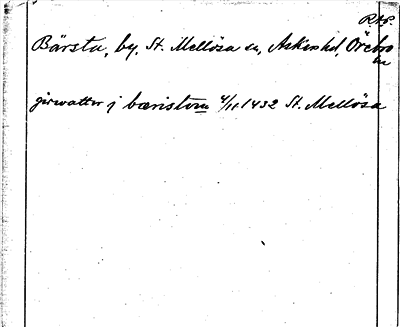 RAP.
Bärsta, by, St. Mellösa sn, Askers hd, Örebro
län
girwatter j bæristom 4/11 1432 St. Mellösa